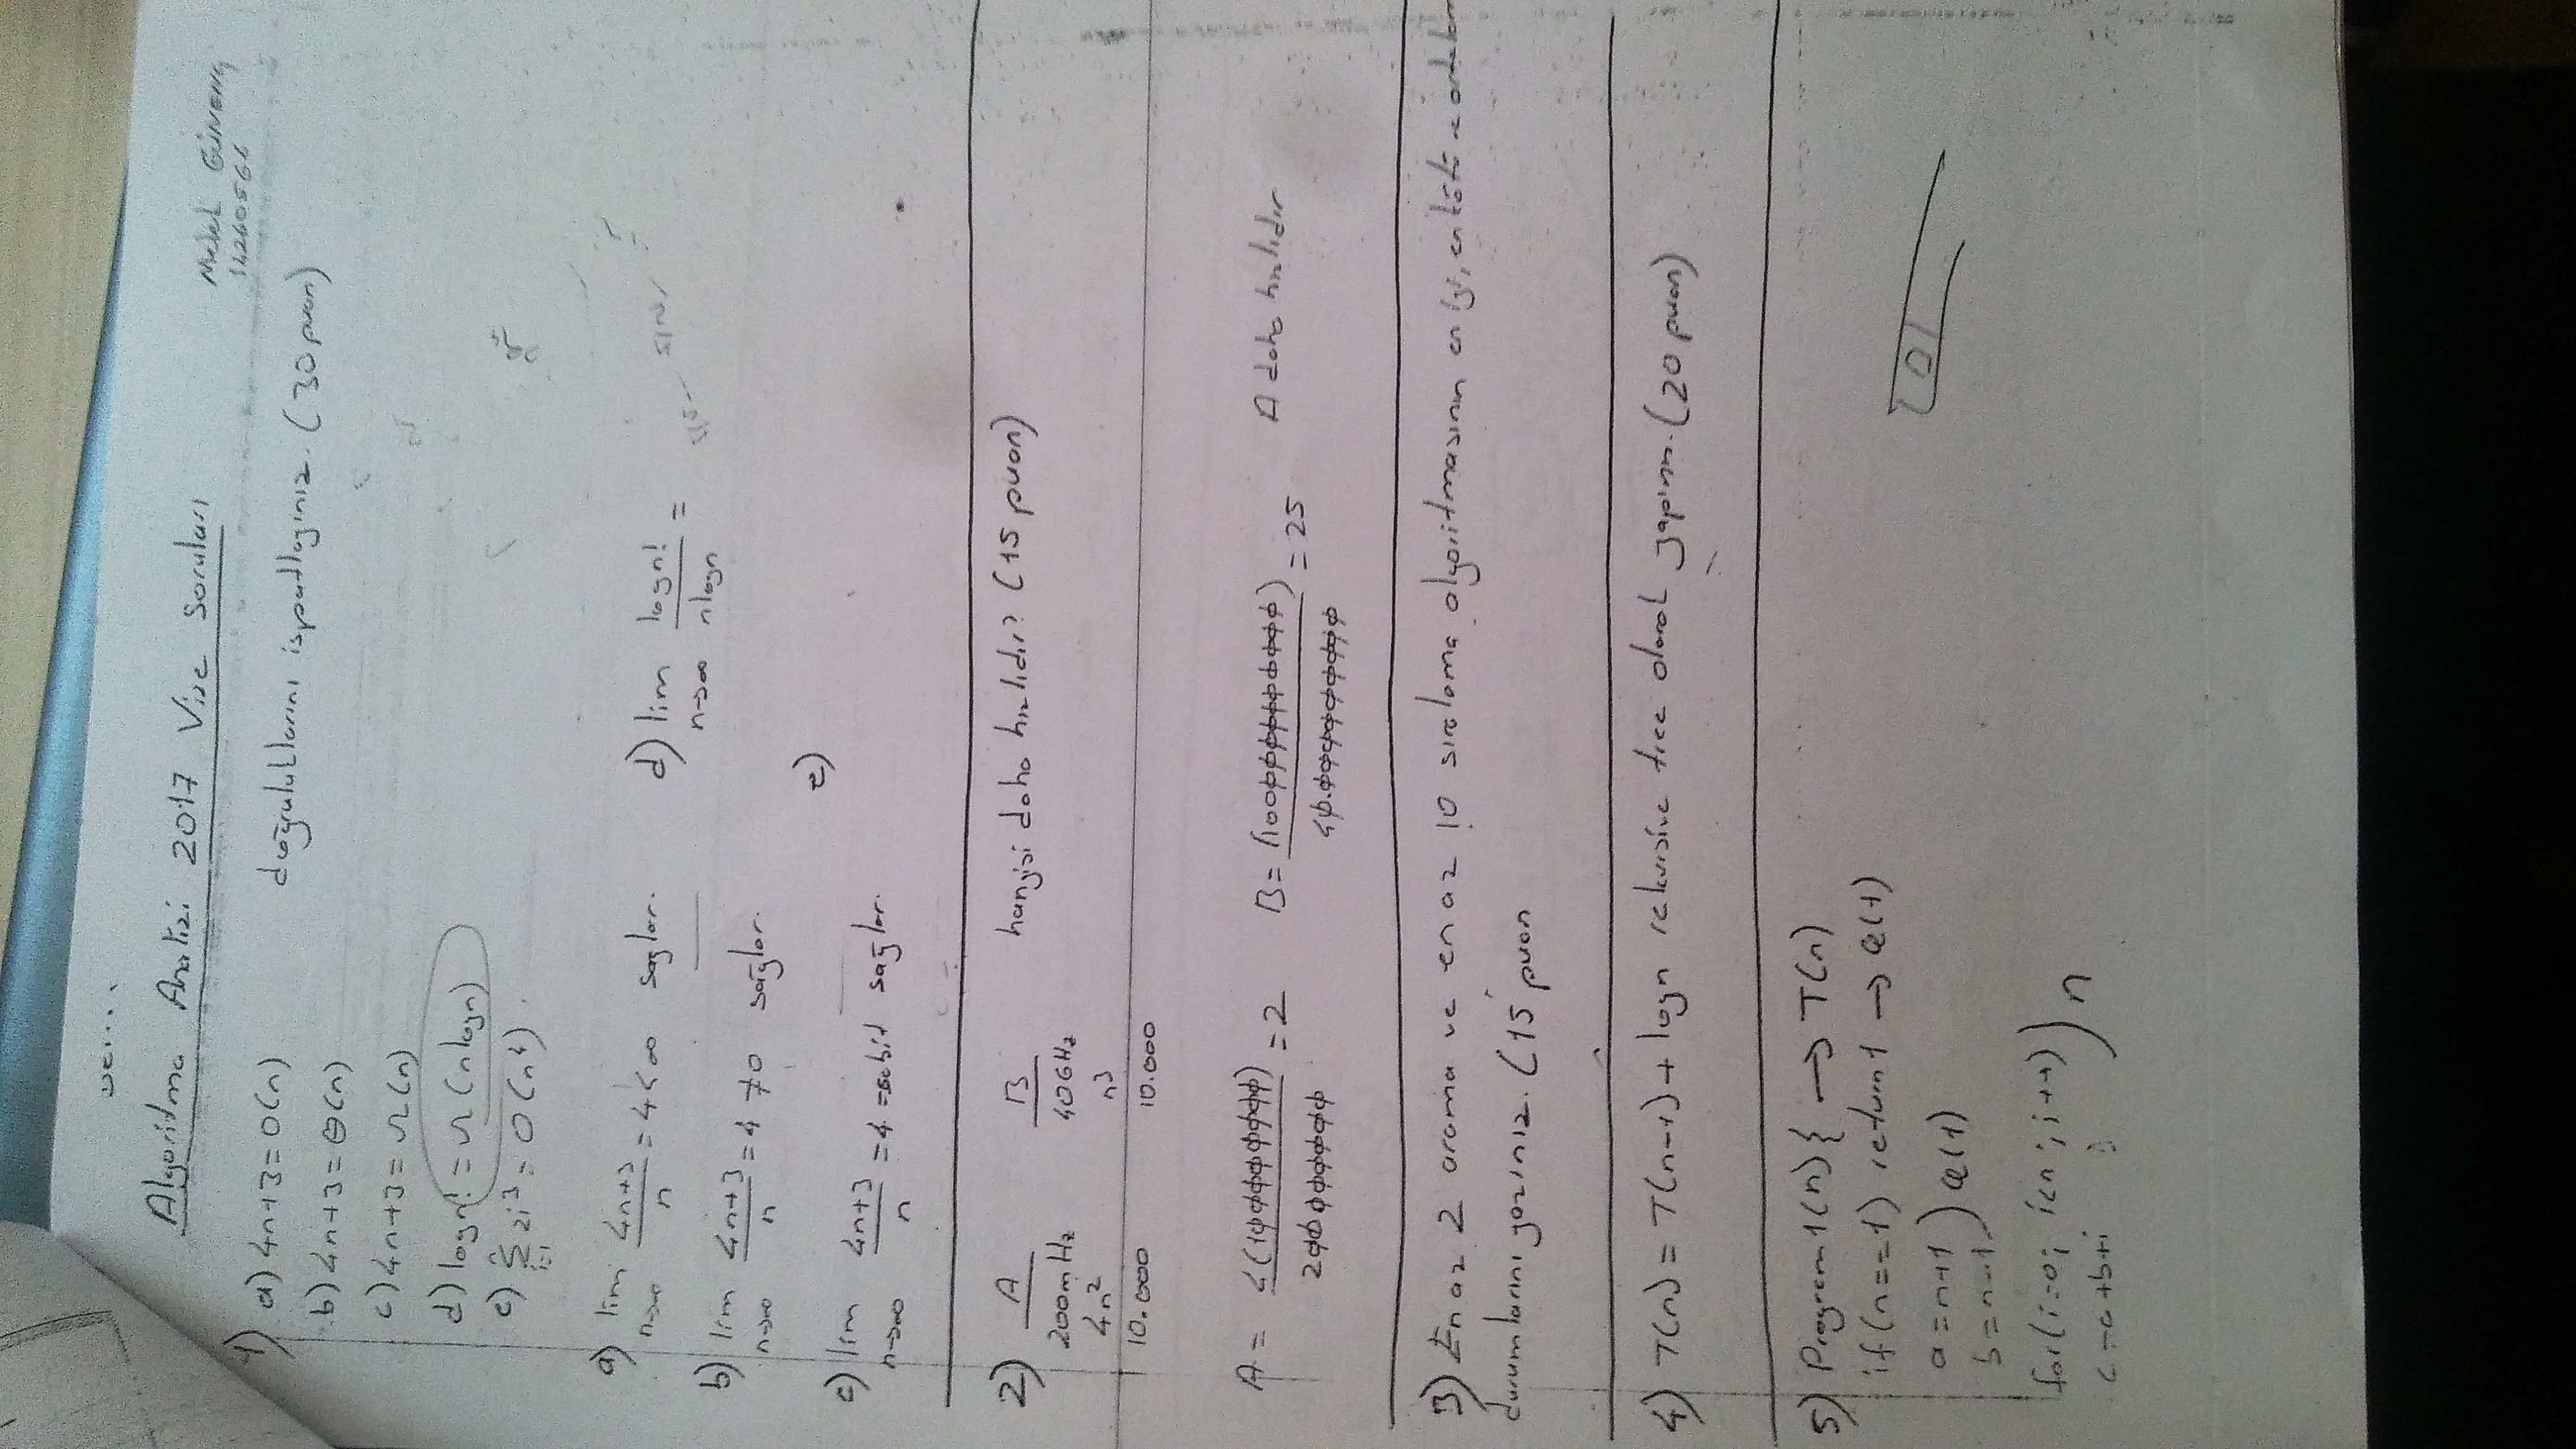 Algoritma Analizi 2017 Vize Soruları
Melek GÜNENÇ
14260566
1) a) 4n+3=O(n) doğruluklarını ispatlayınız. (30 puan)
b) 4n+3=Θ(n)
c) 4n+3=Ω(n)
d) logn! = Ω(nlogn)
e) n Σ i=1 2i³ = O(n⁴)
a) lim n→∞ 4n+3/n = 4 < ∞ sağlar.
d) lim n→∞ logn!/nlogn =
b) lim n→∞ 4n+3/n = 4 ≠ 0 sağlar.
e)
c) lim n→∞ 4n+3/n = 4 = sabit sağlar.
2) A B hangisi daha hızlıdır? (15 puan)
200mHz 40GHz
4n² n3
10.000 10.000
A = 4(100000000)/200000000 = 2 B = (1000000000000)/40.000000000 = 25 A daha hızlıdır
3) En az 2 arama ve en az 10 sıralama algoritmasının en iyi, en kötü ve ortalam
durumlarını yazınız. (15 puan
4) T(n) = T(n-1) + logn rekursive tree olarak yapınız. (20 puan)
5) Program1(n){ → T(n)
if(n==1) return1 → Q(1)
a=n+1
b=n-1 ) Q(1)
for(i=0; i<n; i++)
c=a+b+i ) n